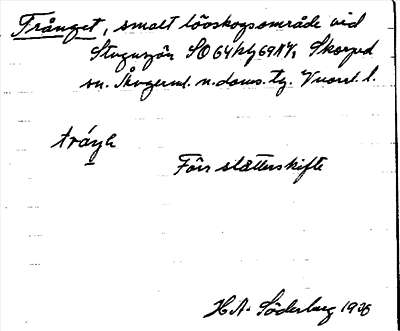 Frånget, smalt lövskogsområde vid
Stugusjön SO 64 hg 69 NV, Skorped
sn. Ångerml. n. doms. tg. Vnorrl. l.
tråŋe
Förr slåtterskifte
H.A. Söderberg 1935